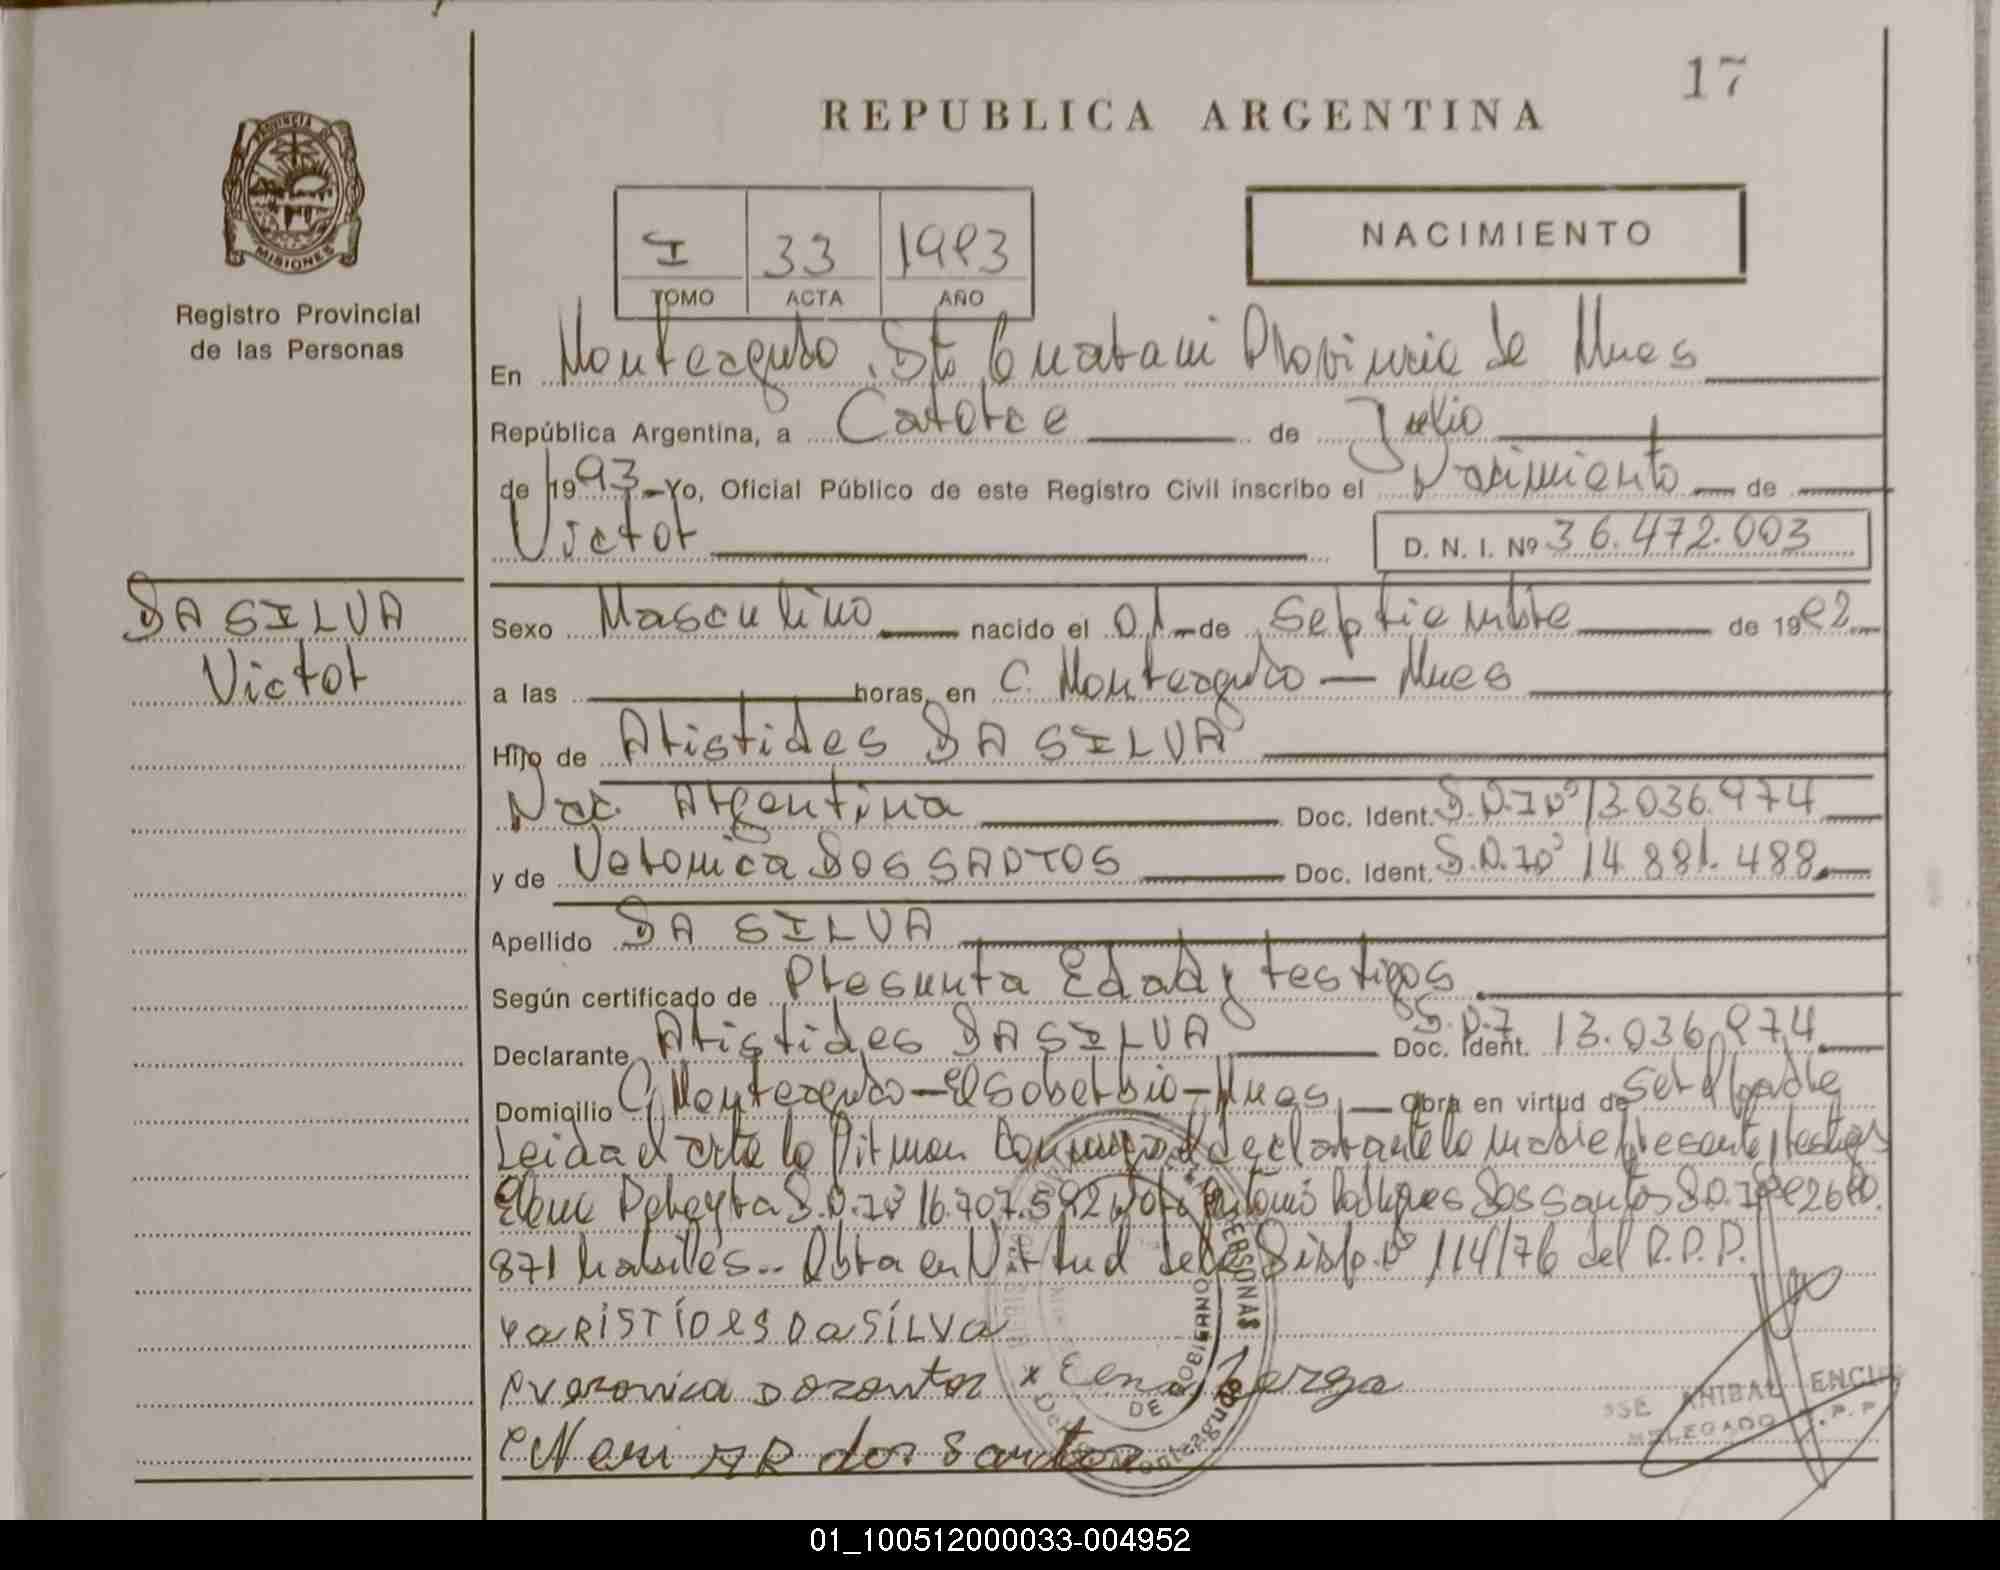 17
REPUBLICA ARGENTINA
PROVINCIA DE
MISIONES
Registro Provincial
de las Personas
I 33 1993
TOMO ACTA AÑO
NACIMIENTO
En Monteagudo, Dto Guarani Provincia de Mnes
República Argentina, a Catorce de Julio
de 1993 Yo, Oficial Público de este Registro Civil inscribo el Nacimiento de
Victor D. N. I. Nº 36.472.003
DA SILVA
Victor
Sexo Masculino nacido el 01 de Septiembre de 19
a las horas, en C. Monteagudo - Mnes
Hijo de Aristides DA SILVA
Nac. Argentina Doc. Ident. D.N.Iº 13.036.974
y de Veronica DOS SANTOS Doc. Ident. D.N.Iº 14.881.488
Apellido DA SILVA
Según certificado de Presunta Edad y testigos
Declarante Aristides DA SILVA Doc. Ident. D.N.I. 13.036.974
Domicilio C. Monteagudo - El Soberbio - Mnes Obra en virtud de ser el padre
Leida el acta la firman Conmigo el declarante la madre presente y testigos
Elena D.N.Iº 16.707.592 Antonio Dos Santos D.N.Iº
871 habiles.. Obra en Virtud de la Disp. Nº 114/76 del R.P.P.
ARISTÍDES Da SÍLVA
x
dos Santos
PERSONAS
DE
Monteagudo
ANIBAL ENCI
DELEGADO R.P.P.
01_100512000033-004952